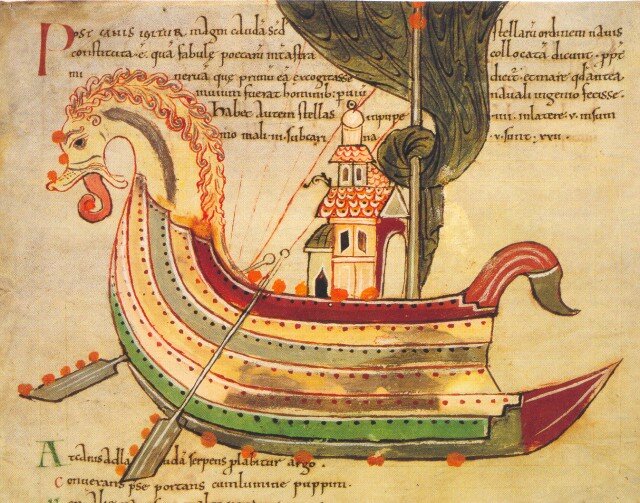 Post canis igitur. magni caudā scđ stellarū ordinem navis
constituta ē. quā fabulę poetarū int astra collocatā dicunt. ppt
mi nervā quę primū eā excogitasse dicit. et mare qđ antea
invium fuerat hominib; pviū navali ingenio fecisse.
habet autem stellas inpuppe .iiii. inlatere .v. insum
mo mali .iii. subcari na .v. sunt.
At canis ad caudā serpens plabitur argo.
Conversam pse portans cumlumine puppim.